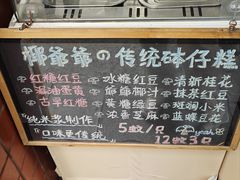 椰爷爷の传统砵仔糕
红糖红豆 冰糖红豆 清新桂花
流油蛋黄 爷爷椰汁 抹茶红豆
古早红糖 黄糖绿豆 斑斓小米
浓香芝麻 蓝蝶豆花
"纯米浆制作"
"口味更传统" 5蚊/只
12蚊3只